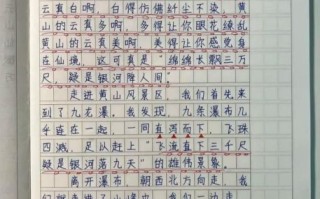 云真白啊，白得仿佛纤尘不染，黄
山的云真多啊，多得让你眼花缭乱
黄山的云真美啊，美得让你感觉身
在仙境，这可真是"绵绵长飘三万
尺，疑是银河降人间"
走进黄山风景区，我们首先来
到了九龙瀑。我发现，九条瀑布几
乎连在一起，一同直泻而下，飞珠
四溅，足以赶上"飞流直下三千尺
疑是银河落九天"的雄伟景象。
离开瀑布，朝西北方向走，我
们